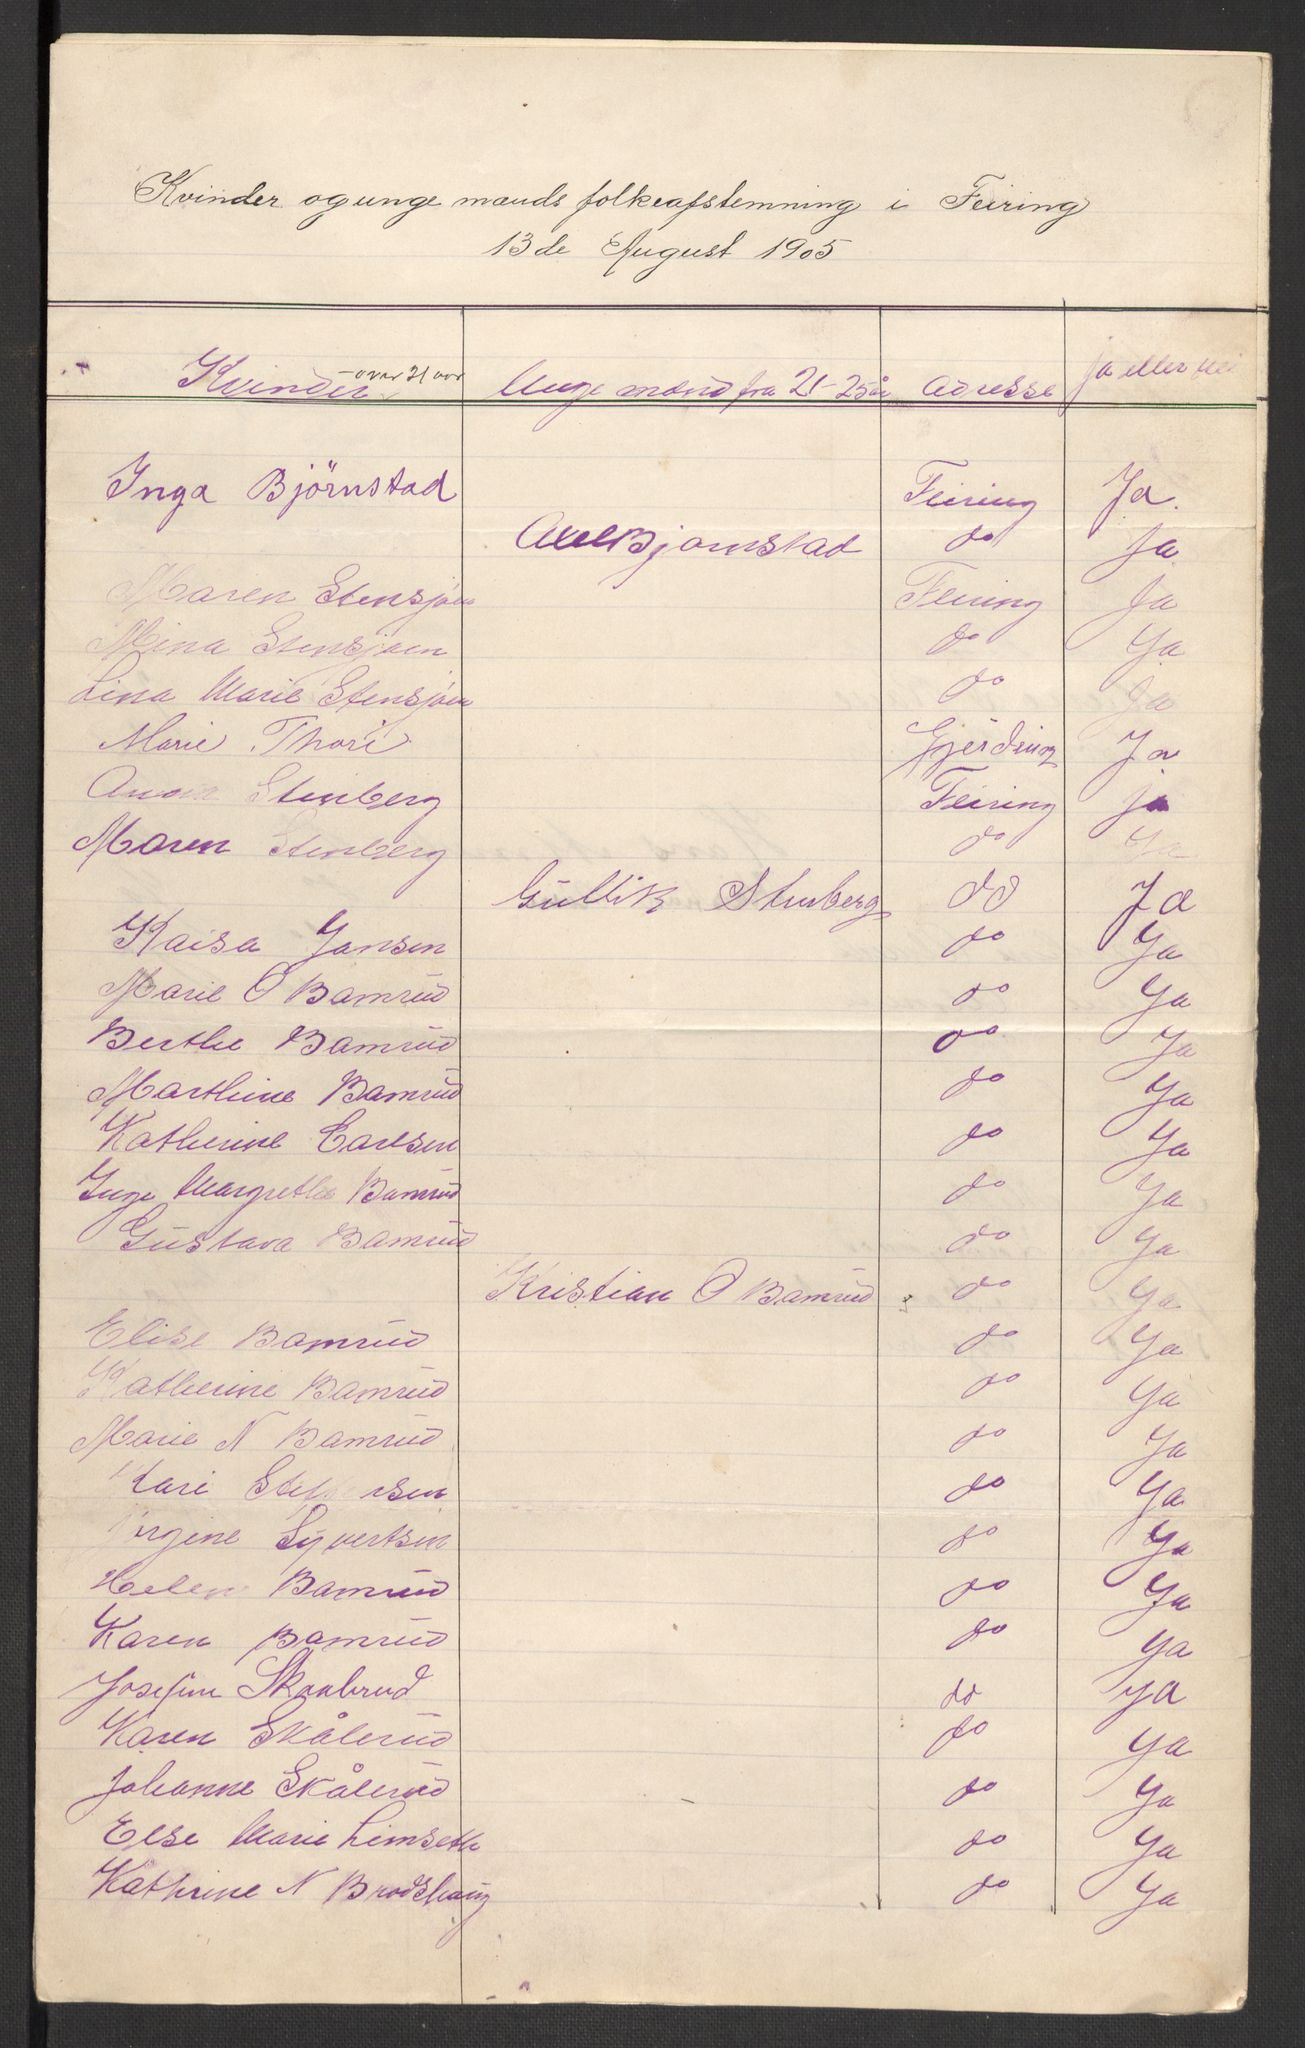 Kvinder og unge mænds folkeafstemning i Feiring
13de August 1905
Kvinder over 21 aar Unge mænd fra 21-25 år Adresse Ja eller nei
Inga Björnstad Feiring Ja.
Axel Bjornstad do Ja
Maren Stensjøen Feiring Ja
Mina Stensjøen do Ja
Lina Marie Stensjøen do Ja
Marie Thori Gjerdning Ja
Anna Stenberg Feiring ja
Maren Stenberg do Ja
Gullik Stenberg do Ja
Kaisa Jansen do Ja
Marie O Bamrud do Ja
Berthe Bamrud do Ja
Marthine Bamrud do Ja
Katherine Carlsen do Ja
Inge Margrethe Bamrud do Ja
Gustava Bamrud do Ja
Kristian O Bamrud do Ja
Elise Bamrud do Ja
Katherine Bamrud do Ja
Marie N Bamrud do Ja
Kari do Ja
Syvertsen do Ja
Helen Bamrud do Ja
Karen Bamrud do Ja
Josefine Skaalerud do Ja
Karen Skålerud do Ja
Johanne Skålerud do Ja
Else Marie Limseth do Ja
Kathrine N Brodshaug do Ja